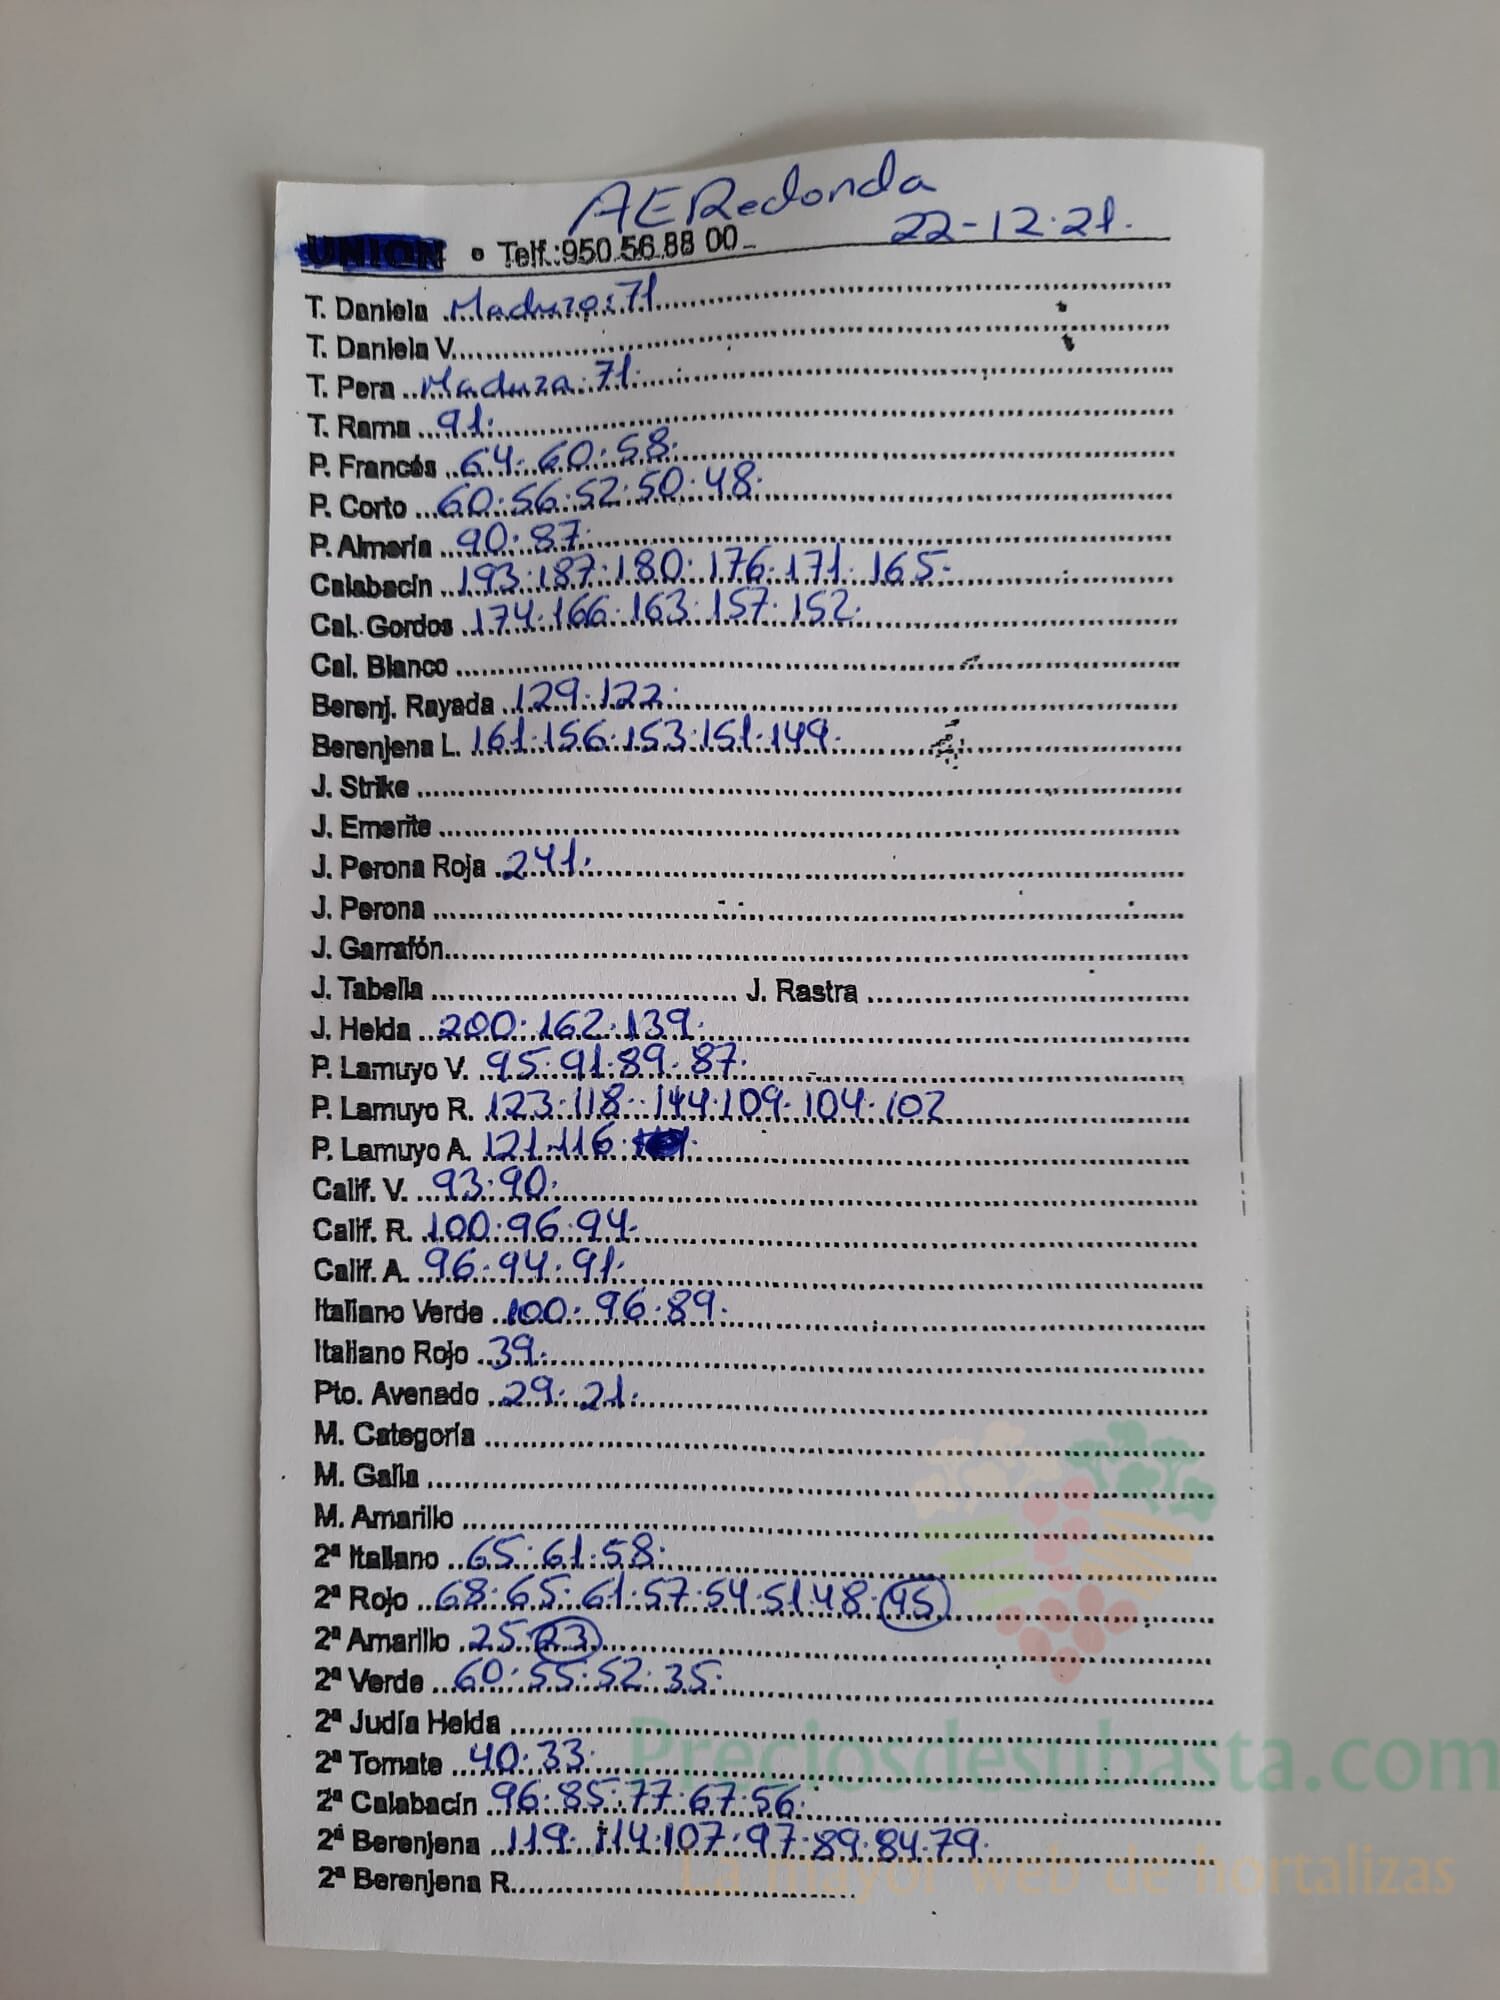 AERedonda
22-12-21.
UNION • Telf.:950 56 88 00
T. Daniela Maduro:71
T. Daniela V.
T. Pera Madura 71.
T. Rama 91.
P. Francés 64.60.58.
P. Corto 60.56.52.50.48.
P. Almería 90.87.
Calabacín 193.187.180.176.171.165.
Cal. Gordos 174.166.163.157.152.
Cal. Blanco
Berenj. Rayada 129.122.
Berenjena L. 161.156.153.151.149.
J. Strike
J. Emerite
J. Perona Roja 241.
J. Perona
J. Garrafón
J. Tabella J. Rastra
J. Helda 200.162.139.
P. Lamuyo V. 95.91.89.87.
P. Lamuyo R. 123.118.144.109.104.102
P. Lamuyo A. 121.116.
Calif. V. 93.90.
Calif. R. 100.96.94.
Calif. A. 96.94.91.
Italiano Verde 100.96.89.
Italiano Rojo 39.
Pto. Avenado 29.21.
M. Categoría
M. Galia
M. Amarillo
2ª Italiano 65.61.58.
2ª Rojo 68.65.61.57.54.51.48.45
2ª Amarillo 25.23
2ª Verde 60.55.52.35.
2ª Judía Helda
2ª Tomate 40.33.
2ª Calabacín 96.85.77.67.56.
2ª Berenjena 119.114.107.97.89.84.79.
2ª Berenjena R.
Preciosdesubasta.com
La mayor web de hortalizas